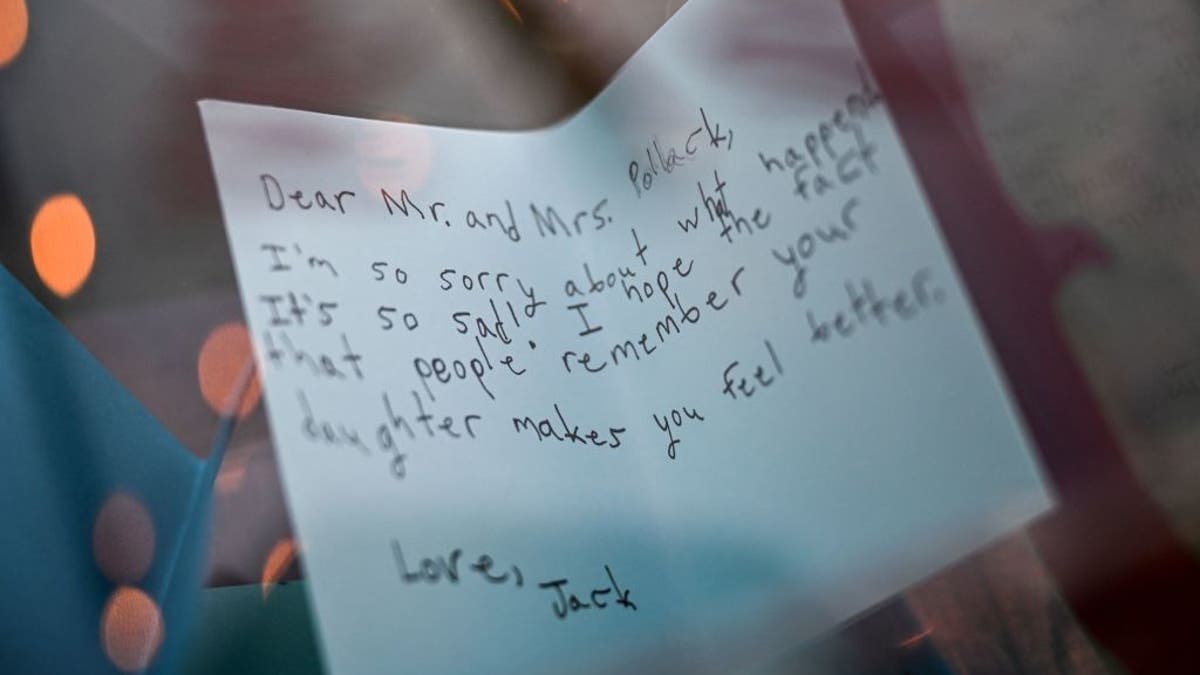 Dear Mr. and Mrs. Pollack,
I'm so sorry about what happend
It's so sad! I hope the fact
that people remember your
daughter makes you feel better.
Love, Jack